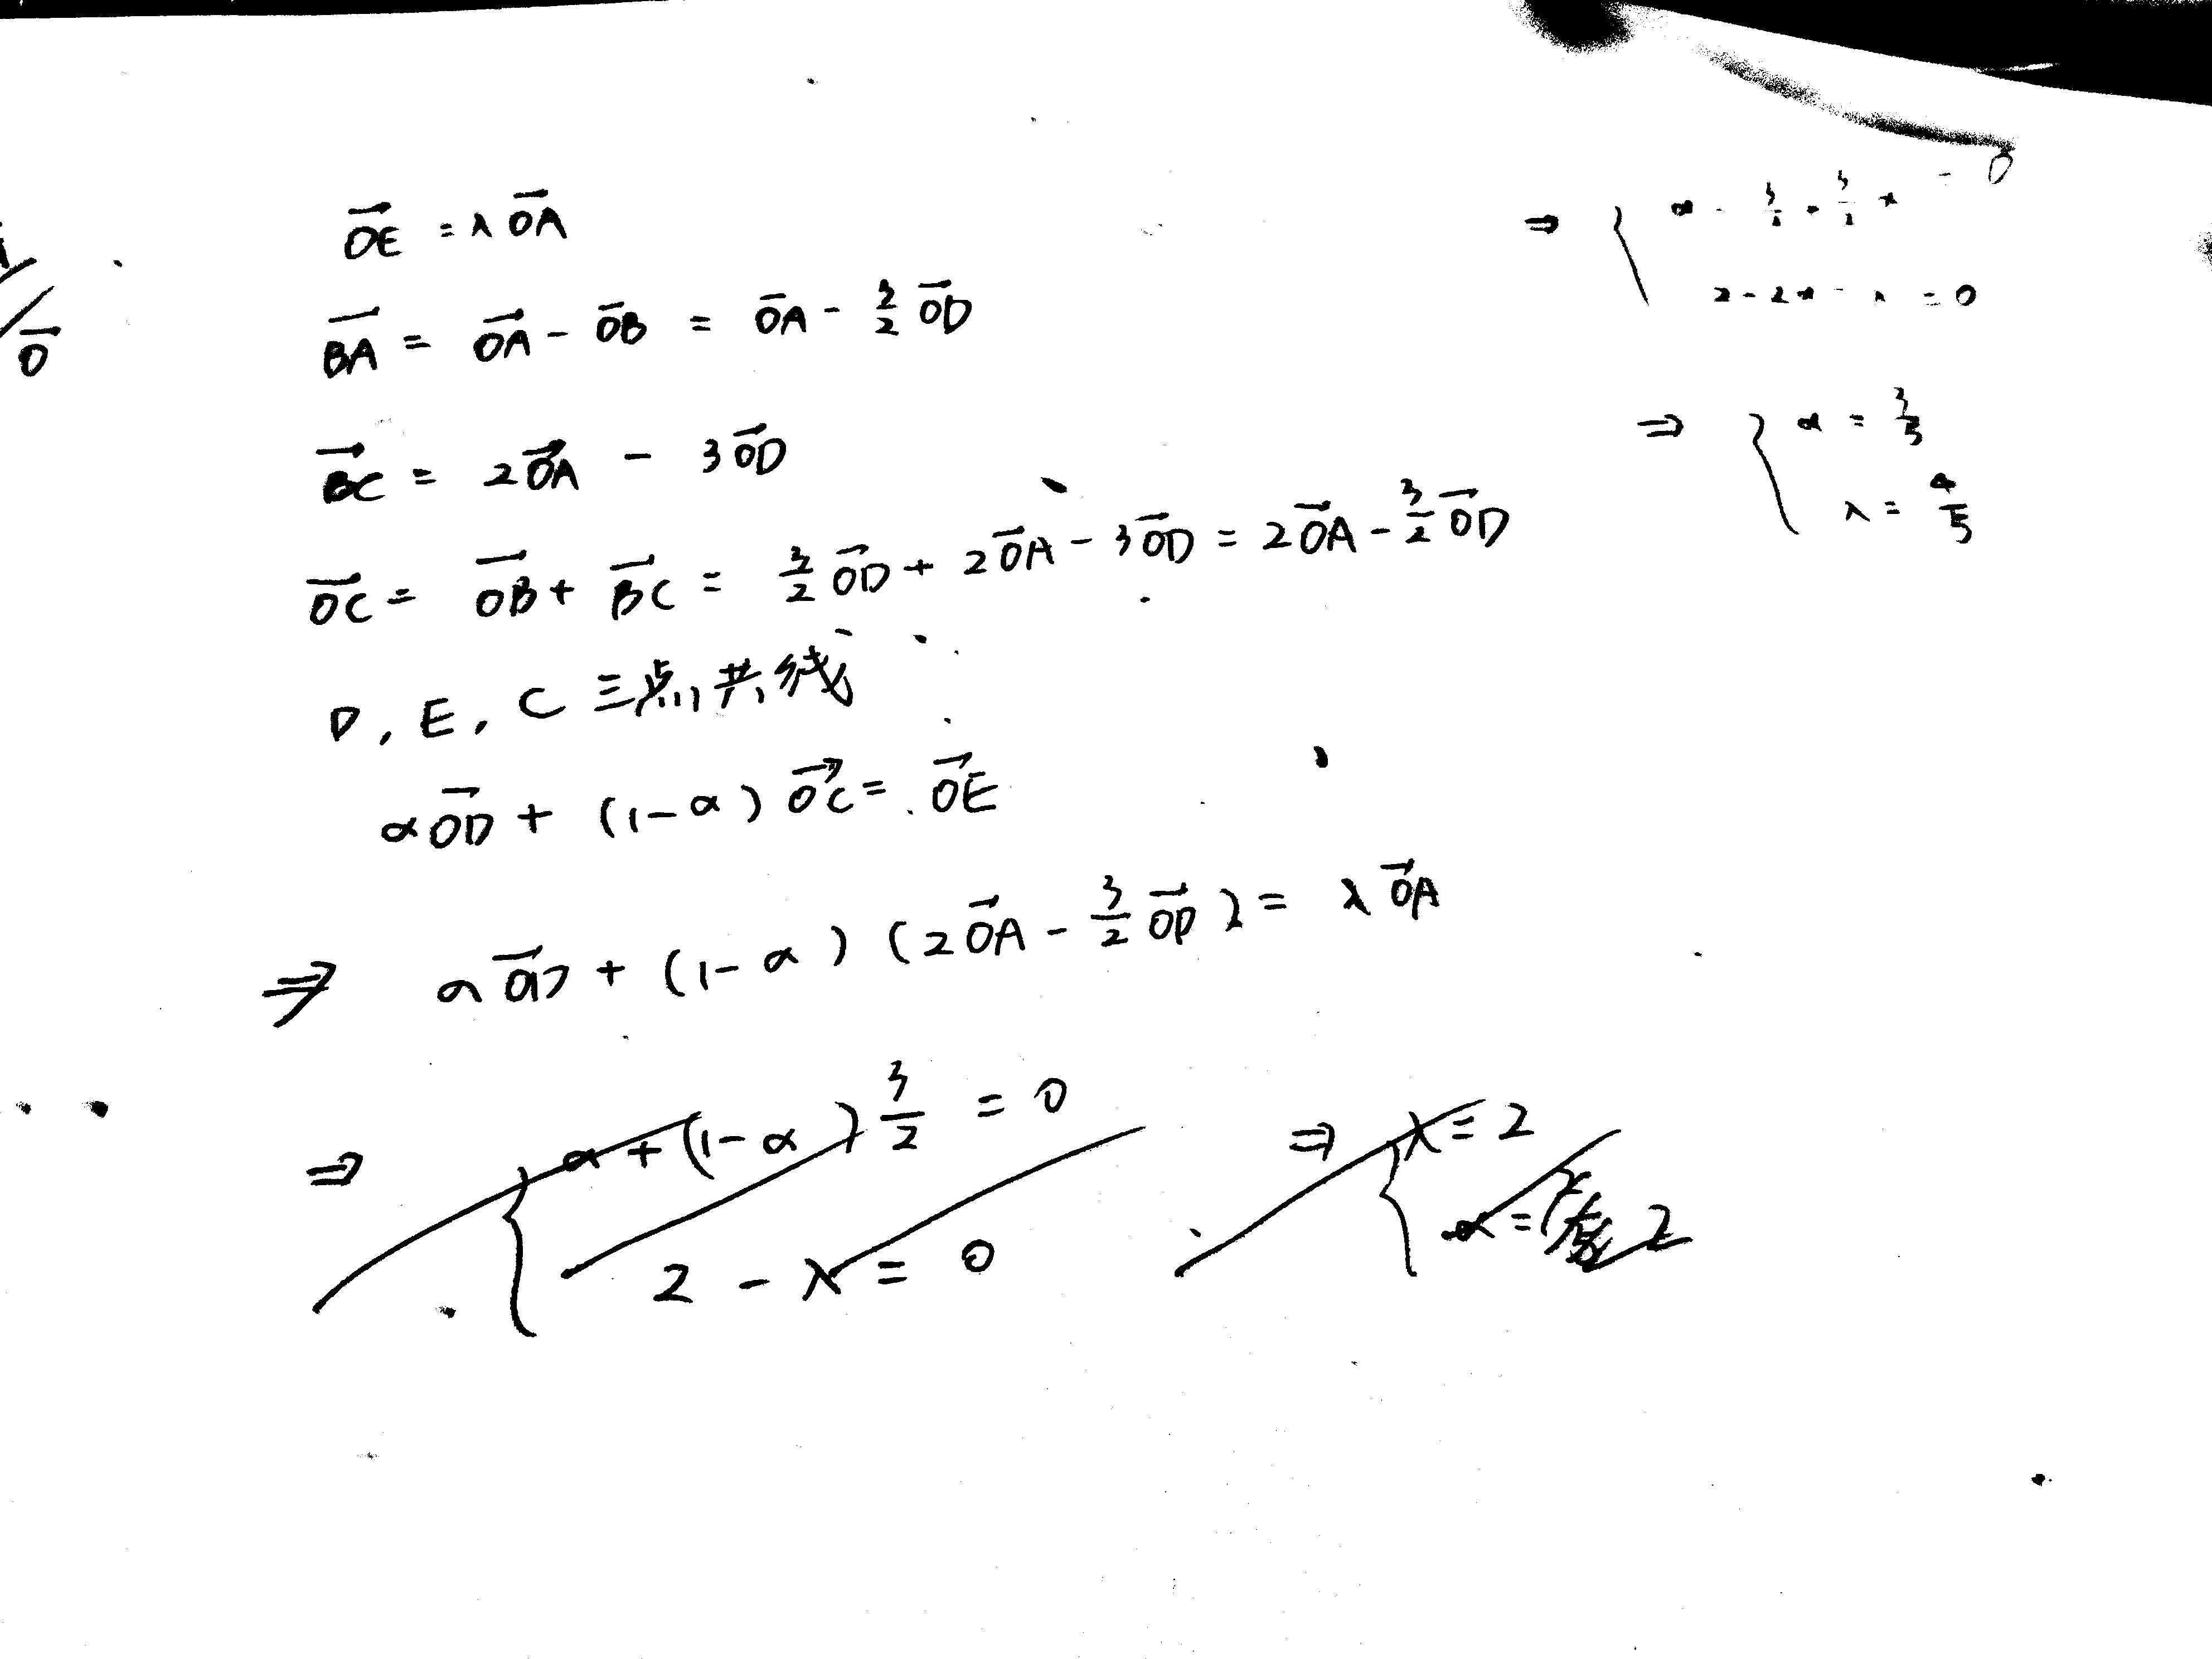 →OE = λ →OA
→BA = →OA - →OB = →OA - 3/2 →OD
→BC = 2→OA - 3→OD
→OC = →OB + →BC = 3/2 →OD + 2→OA - 3→OD = 2→OA - 3/2 →OD
D, E, C 三点共线
α→OD + (1-α) →OC = →OE
⇒ α→OD + (1-α)(2→OA - 3/2 →OD) = λ →OA
⇒ { α + (1-α) 3/2 = 0
2 - λ = 0
⇒ { λ = 2
α = 2
⇒ { α - 3/2 + 3/2 α = 0
2 - 2α - λ = 0
⇒ { α = 3/5
λ = 4/5